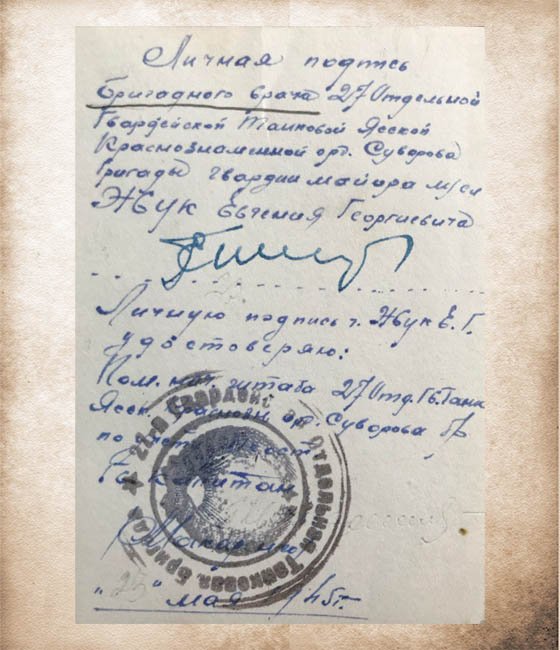 Личная подпсь
бригадного врача 27 Отдельной
Гвардейской Танковой Ясской
Краснознаменной орд. Суворова
бригады гвардии майора м/сл
Жук Евгения Георгиевича
Личную подпись т. Жук Е. Г.
удостоверяю:
Пом. нач. штаба 27 Отд. Гв. Танк
Ясск. Краснозн. орд. Суворова бр
по
Гв. капитан
"25" мая 1945г.
27-я Гвардейская Отдельная Танковая Бригада